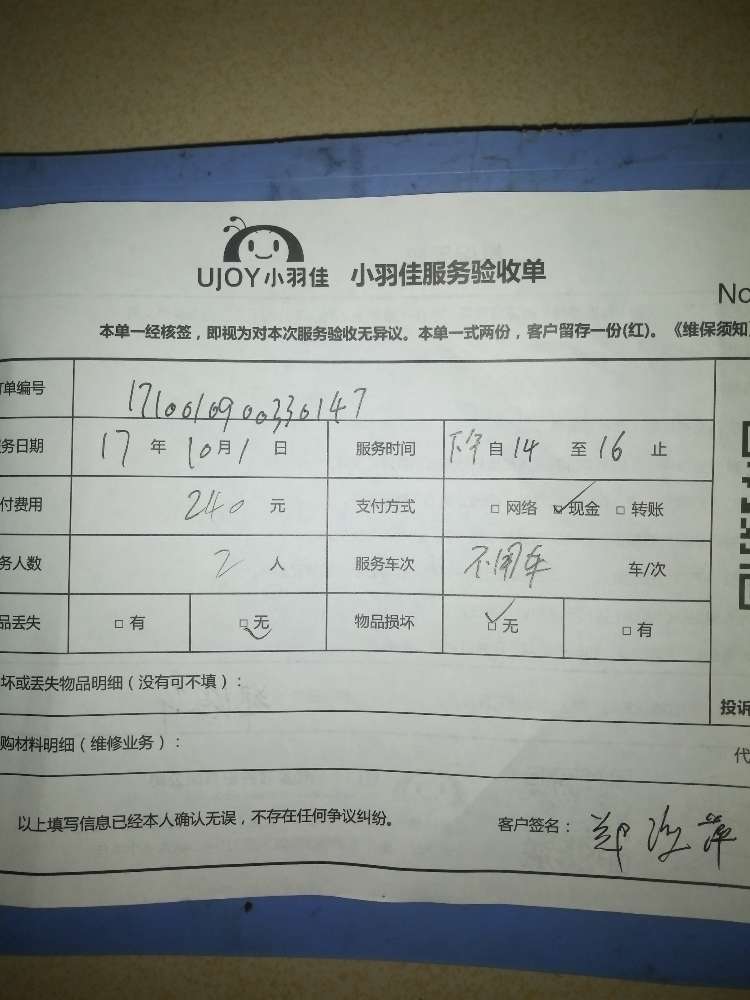 UJOY小羽佳 小羽佳服务验收单
No
本单一经核签，即视为对本次服务验收无异议。本单一式两份，客户留存一份(红)。《维保须知
单编号 1710010900330147
务日期 17 年 10 月 1 日 服务时间 下午 自 14 至 16 止
付费用 240 元 支付方式 □ 网络 ☑ 现金 □ 转账
务人数 2 人 服务车次 不用车 车/次
品丢失 □ 有 ☑ 无 物品损坏 ☑ 无 □ 有
坏或丢失物品明细（没有可不填）：
投诉
购材料明细（维修业务）：
代
以上填写信息已经本人确认无误，不存在任何争议纠纷。 客户签名： 郑海萍